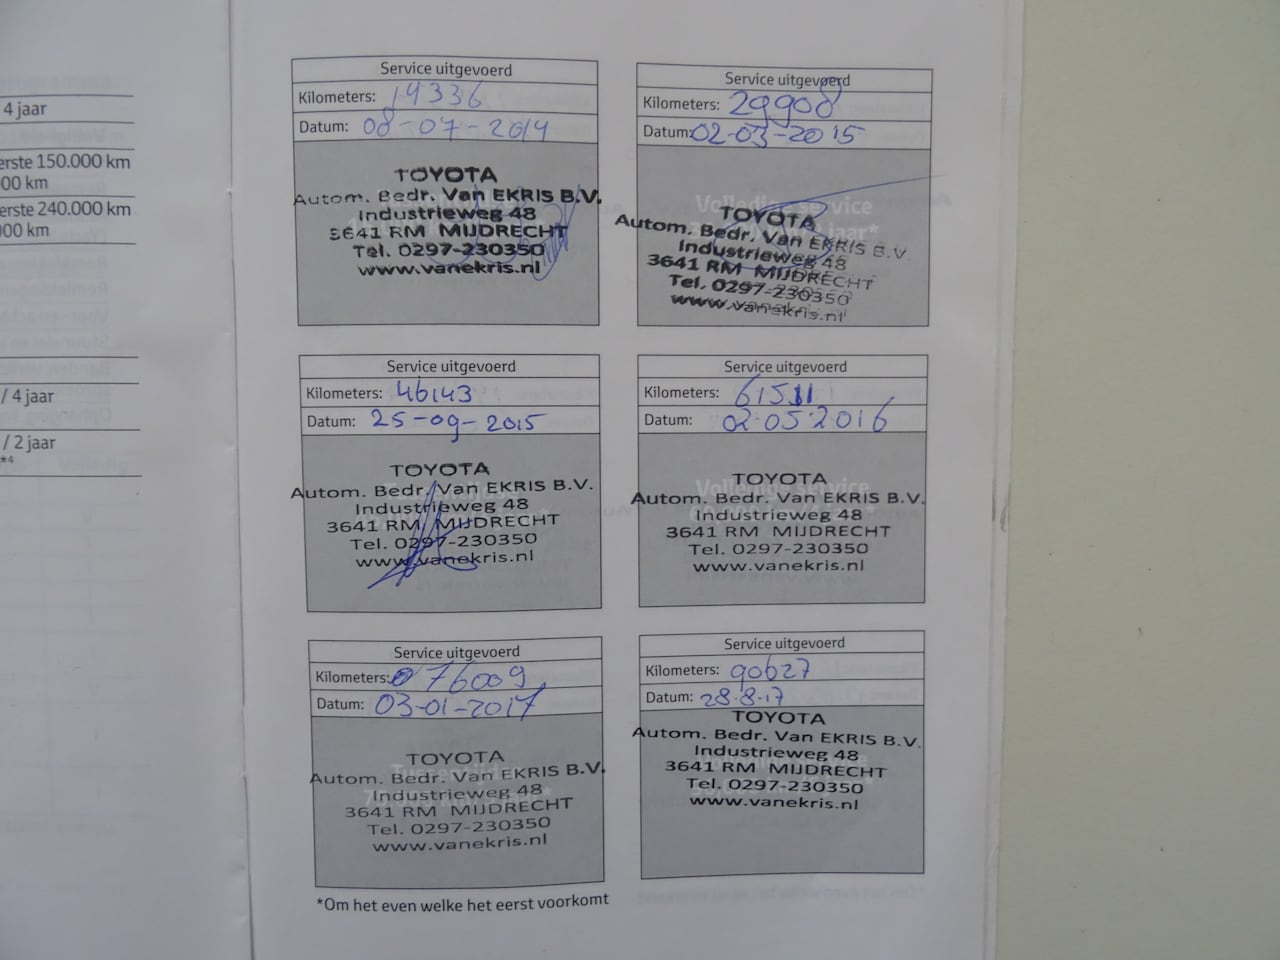 4 jaar
erste 150.000 km
00 km
erste 240.000 km
000 km
/ 4 jaar
/ 2 jaar
*4
Service uitgevoerd
Kilometers: 14336
Datum: 08-07-2014
TOYOTA
Autom. Bedr. Van EKRIS B.V.
Industrieweg 48
3641 RM MIJDRECHT
Tel. 0297-230350
www.vanekris.nl
Service uitgevoerd
Kilometers: 29908
Datum: 02-03-2015
Volledige service
jaar*
TOYOTA
Autom. Bedr. Van EKRIS B.V.
Industrieweg 48
3641 RM MIJDRECHT
Tel. 0297-230350
www.vanekris.nl
Service uitgevoerd
Kilometers: 46143
Datum: 25-09-2015
TOYOTA
Autom. Bedr. Van EKRIS B.V.
Industrieweg 48
3641 RM MIJDRECHT
Tel. 0297-230350
www.vanekris.nl
Service uitgevoerd
Kilometers: 61511
Datum: 02-05-2016
Volledige service
TOYOTA
Autom. Bedr. Van EKRIS B.V.
Industrieweg 48
3641 RM MIJDRECHT
Tel. 0297-230350
www.vanekris.nl
Service uitgevoerd
Kilometers: 076009
Datum: 03-01-2017
TOYOTA
Autom. Bedr. Van EKRIS B.V.
Industrieweg 48
3641 RM MIJDRECHT
Tel. 0297-230350
www.vanekris.nl
Service uitgevoerd
Kilometers: 90627
Datum: 28-8-17
TOYOTA
Autom. Bedr. Van EKRIS B.V.
Industrieweg 48
3641 RM MIJDRECHT
Tel. 0297-230350
www.vanekris.nl
*Om het even welke het eerst voorkomt